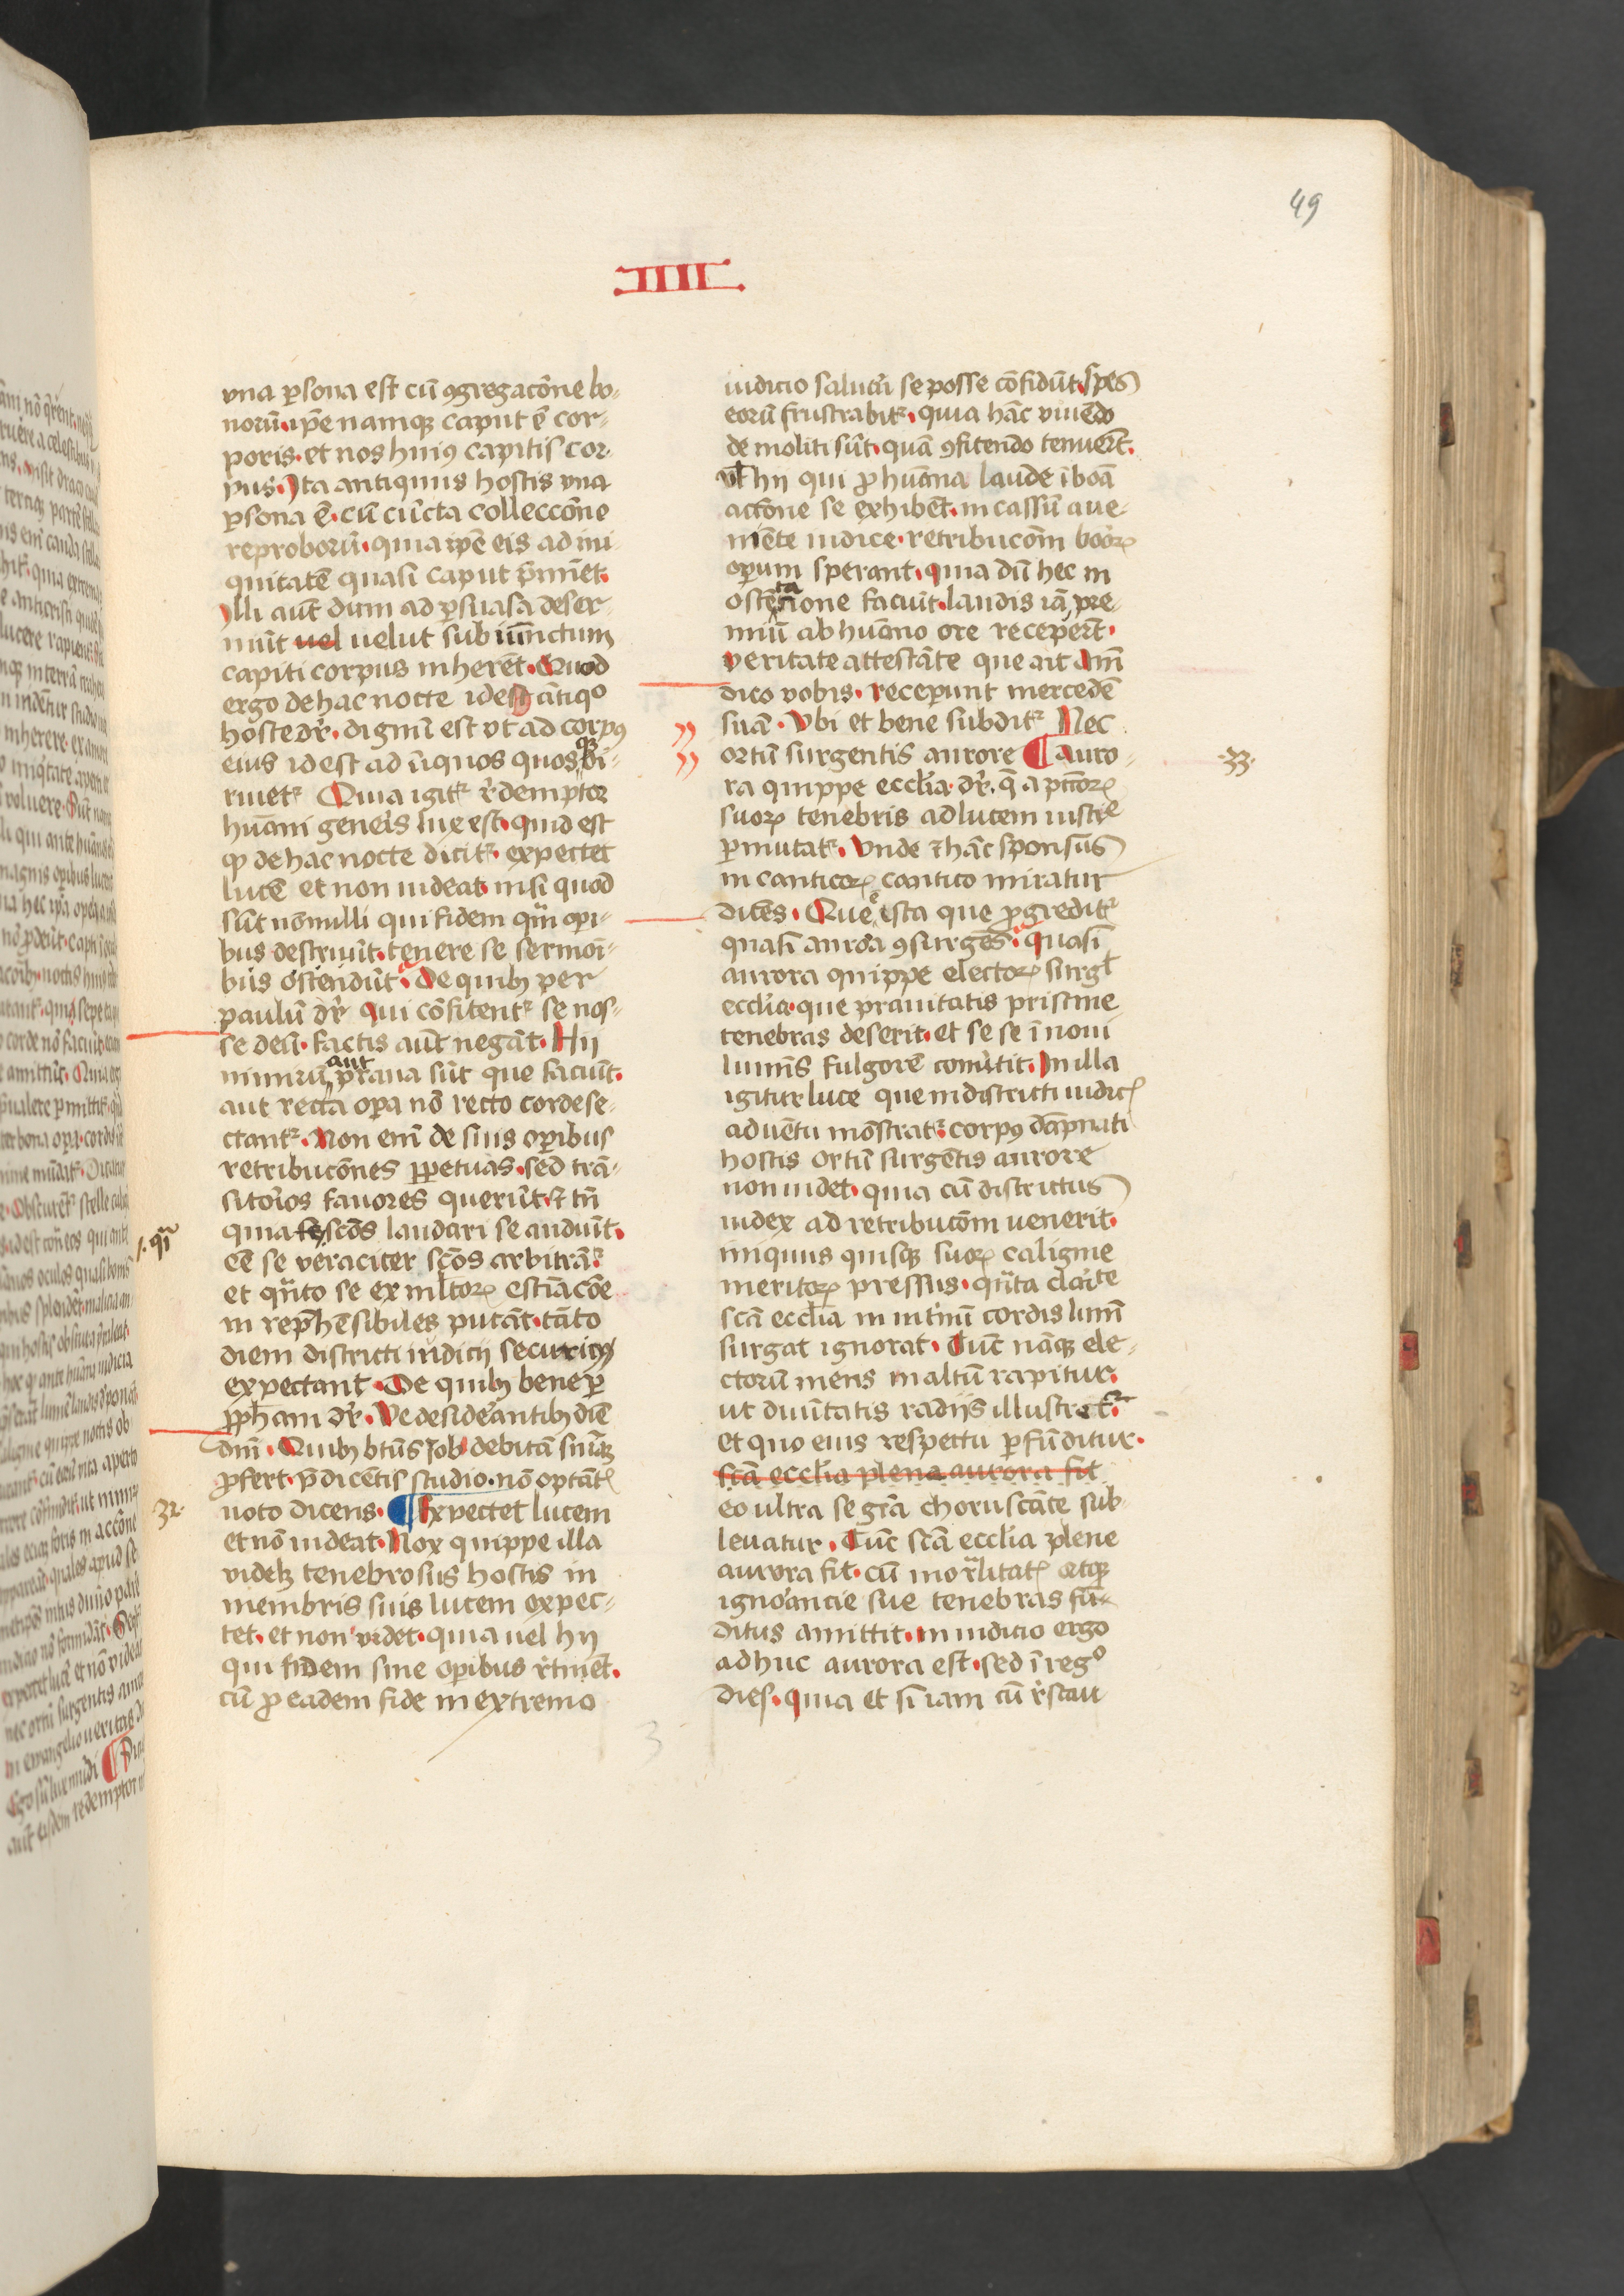 49
IIII
vna ꝑsona est cū ꝯgregacōne bo-
norū. ip̄e namqꝫ caput ē cor-
poris. et nos huiꝰ capitis cor-
pus. Ita antiquus hostis vna
ꝑsona ē. cū cūcta colleccōne
reproborū. quia ip̄e eis ad ini-
quitatē quasi caput p̄minet.
Illi aut̄ dum ad ꝑsuasa deser-
uiūt uel uelut subiūnctum
capiti corpus inherēt. Quod
ergo de hac nocte idest ātiqͦ
hoste dr̄. dignū est vt ad corpꝰ
eius id est ad īiquos quosqꝫ di-
riuetᷣ Quia igitᷣ redemptor
huāni geneis lux est. quid est
ꝙ de hac nocte dicitᷣ. expectet
lucē et non uideat. nisi quod
sūt nōnulli qui fidem quā opi-
bus destruūt. tenere se sermōi-
bus ostendūt. De quibꝫ per
paulū dr̄ Qui cōfitentᷣ se nos-
se deū. factis aut̄ negāt. Hij
nimirū aut praua sūt que faciūt.
aut recta oꝑa nō recto corde se-
ctantᷣ. Non enī de suis oꝑibus
retribucōnes ꝑpetuas. sed trā-
sitoios fauores querūt. ⁊ tn̄
quia scōs laudari se audiūt.
eē se veraciter scōs arbitrātᷣ.
et quāto se ex multoꝝ estiacōe
in rep̄hēsibiles putāt. tāto
diem districti iudicij securiꝰ
expectant. De quibꝫ bene ꝑ
ꝓph̄am dr̄. Ve desideantibꝫ diē
dnī. Quibꝫ btūs Iob debitā sniāꝫ
ꝓfert. p̄dicētis studio. nō optātꝭ
uoto dicens. Expectet lucem
et nō uideat. Nox quippe illa
videlꝫ tenebrosus hostis in
membris suis lucem expec-
tet. et non videt. quia uel hij
qui fidem sine oꝑibus retinēt.
cū ꝓ eadem fide in extremo
iudicio saluari se posse cōfidūt. spes
eorū frustrabitᷣ. quia hāc viuēdo
de moliti sūt. quā ꝯfitendo tenuert̄.
Vl̄ hij qui ꝓ huāna laude ī boā
actōne se exhibēt. in cassū a ue-
niēte iudice. retribucōm booꝝ
oꝑum sperant. quia dū hec in
ostētatione faciūt. laudis iā pre-
miū ab huāno ore recepert̄.
veritate attestāte que ait Am̄
dico vobis. receperunt mercedē
suā. Vbi et bene subditᷣ Nec
ortū surgentis aurore Auro-
ra quippe ecclia dr̄. q̄ a pctōꝝ
suoꝝ tenebris ad lucem iusticie
ꝑmutatᷣ. Vnde ⁊ hāc sponsus
in canticoꝝ cantico miratur
dicēs. Que ē ista que ꝓgreditᷣ
quasi aurōa ꝯsurgēs. quasi
aurora quippe electoꝝ surgit
ecclia. que prauitatis pristine
tenebras deserit. et se se ī noui
luminis fulgorē conūtit. In illa
igitur luce que in districti iudicꝭ
aduētu mōstratᷣ. corpꝰ dāpnati
hostis ortū surgētis aurore
non uidet. quia cū districtus
iudex ad retribucōm uenerit.
iniquus quisqꝫ suoꝝ caligine
meritoꝝ pressus. quāta claite
scā ecclia in intimū cordis lumē
surgat ignorat. Tūc nāqꝫ ele-
ctorū mens in altū rapitur.
ut diuitatis radijs illustretᷣ.
et quo eius respectu ꝑfūditur.
scā ecclia plena aurora fit
eo ultra se grā choruscāte sub-
leuatur. Tūc scā ecclia plene
aurora fit. cū mortalitatꝭ atqꝫ
ignoancie sue tenebras fū-
ditus amittit. in iudicio ergo
adhuc aurora est. sed ī regͦ
dies. quia et si iam cū restau
32.
.33.